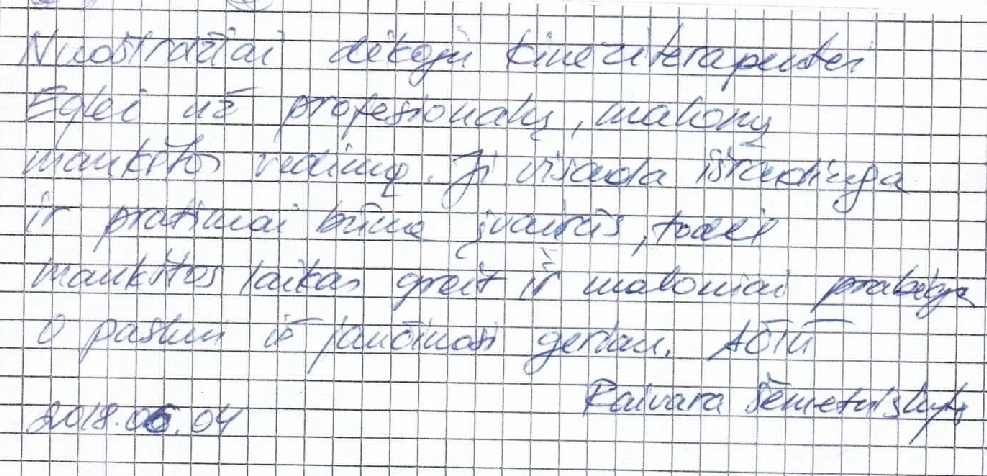 Nuoširdžiai dėkoju kineziterapeutei
Eglei už profesionalų, malonų
mankštos vedimą. Ji visada išradinga
ir pratimai būna įvairūs, todėl
mankštos laikas greit ir maloniai prabėga
o paskui ir jaučiuosi geriau. AČIŪ
2018.06.04